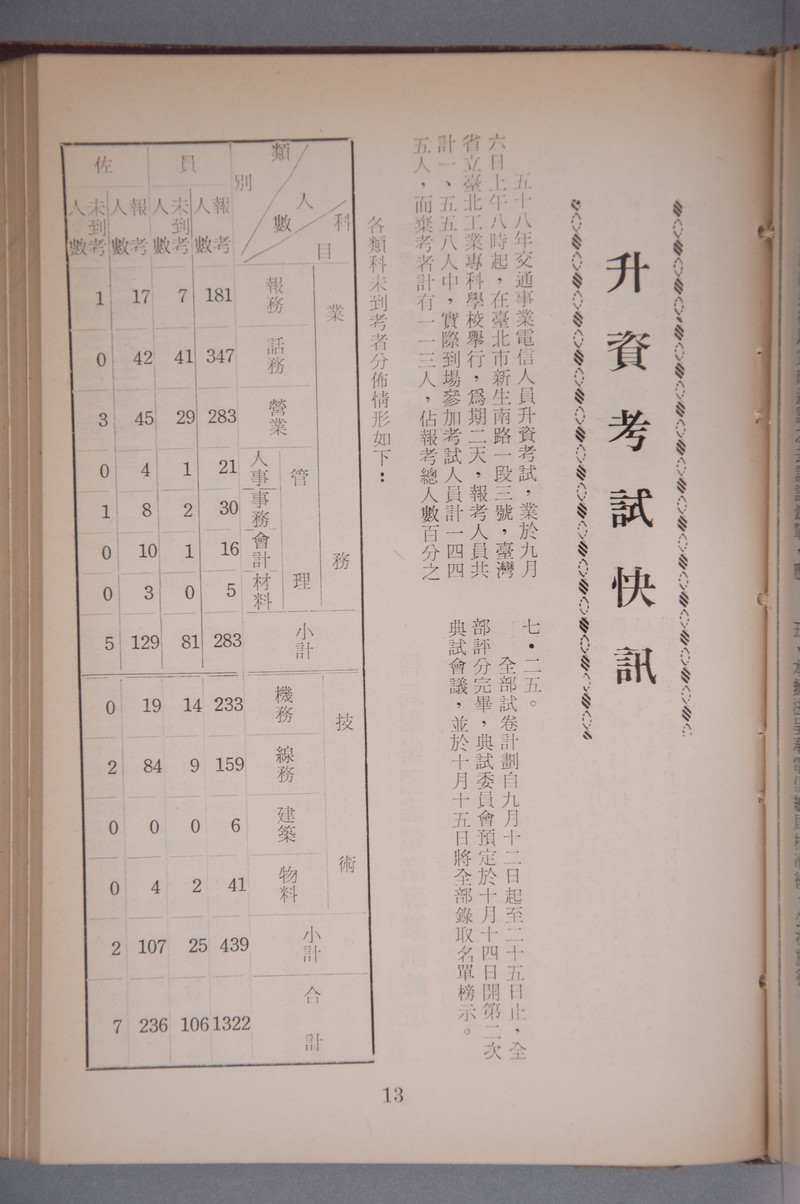 升資考試快訊
五十八年交通事業電信人員升資考試，業於九月
六日上午八時起，在臺北市新生南路一段三號，臺灣
省立臺北工業專科學校舉行，爲期二天，報考人員共
計一、五五八人中，實際到場參加考試人員計一四四
五人，而棄考者計有一一三人，佔報考總人數百分之
七・二五。
全部試卷計劃自九月十二日起至二十五日止，全
部評分完畢，典試委員會預定於十月十四日開第二次
典試會議，並於十月十五日將全部錄取名單榜示。
各類科未到考者分佈情形如下：
類別 人數 科目
員 佐
報考人數 未到考人數 報考人數 未到考人數
業務
報務 181 7 17 1
話務 347 41 42 0
營業 283 29 45 3
管理
人事 21 1 4 0
事務 30 2 8 1
會計 16 1 10 0
材料 5 0 3 0
小計 283 81 129 5
技術
機務 233 14 19 0
線務 159 9 84 2
建築 6 0 0 0
物料 41 2 4 0
小計 439 25 107 2
合計 1322 106 236 7
13